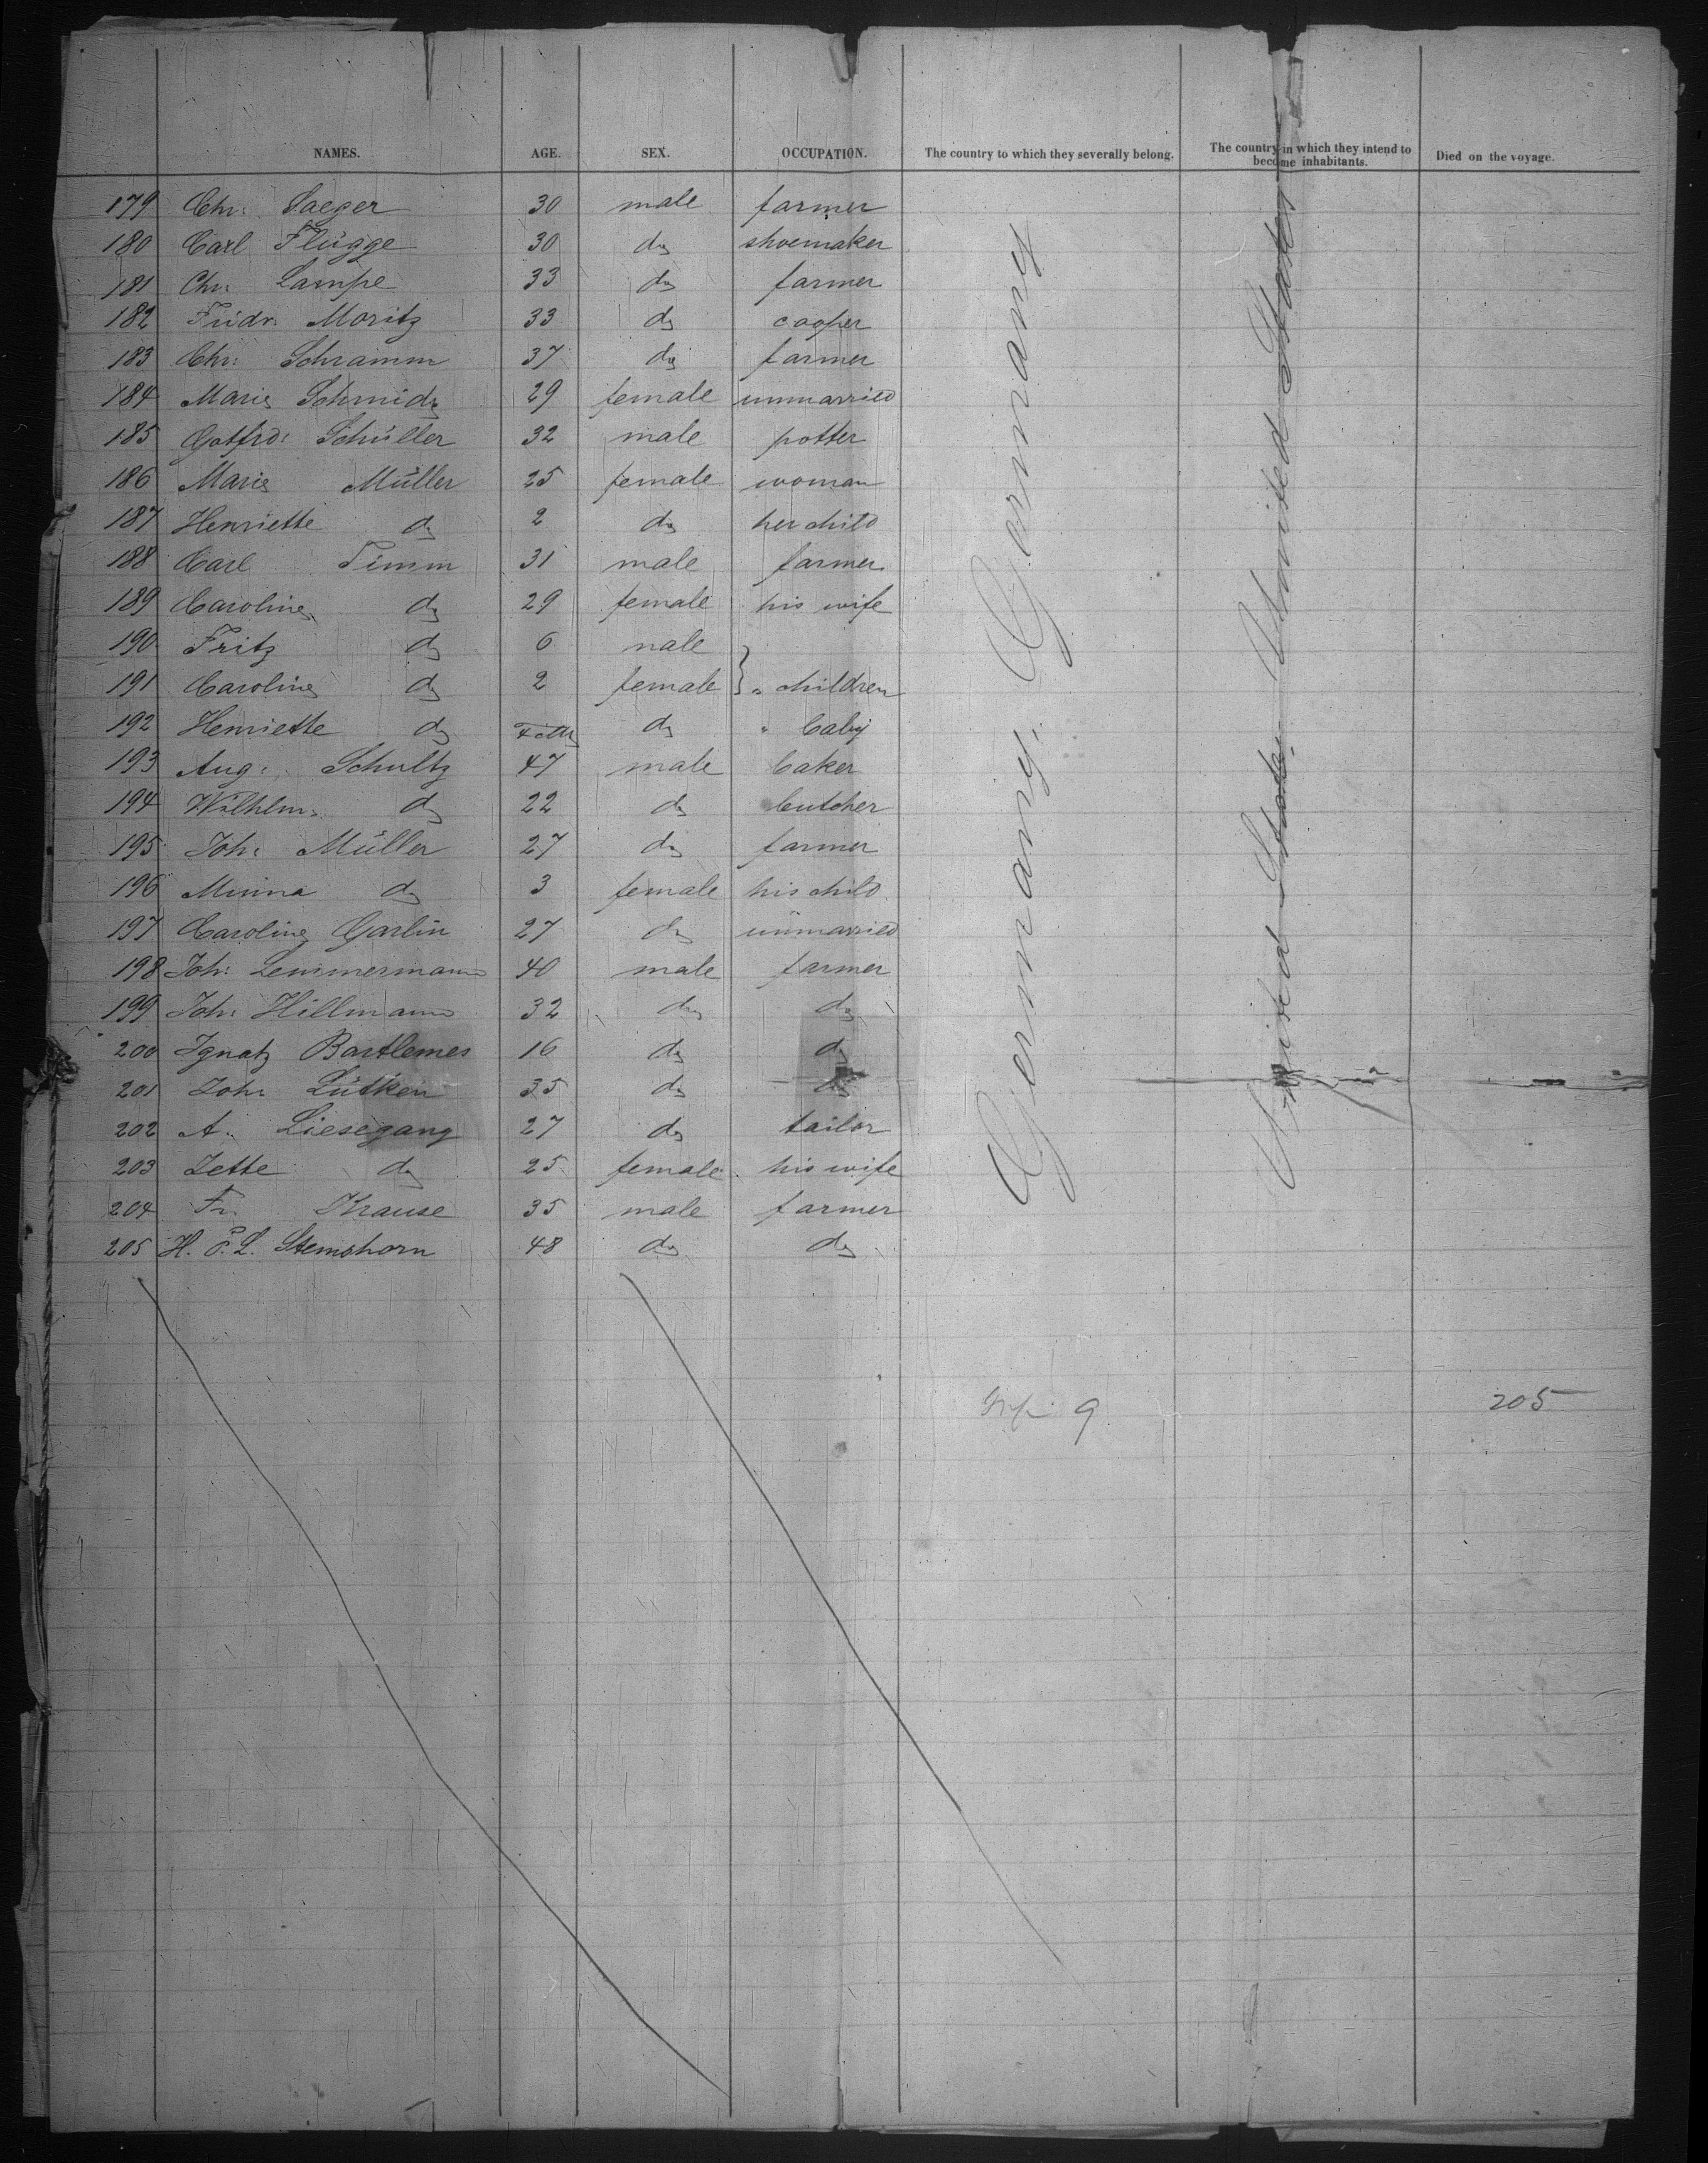 NAMES. AGE. SEX. OCCUPATION. The country to which they severally belong. The country in which they intend to become inhabitants. Died on the voyage.
179 Chr: Saeger 30 male farmer
180 Carl Flügge 30 do shoemaker
181 Chr: Lampe 33 do farmer
182 Fridr. Moritz 33 do cooper
183 Chr: Schramm 37 do farmer
184 Marie Schmidt 29 female unmarried
185 Gotfrd: Schüller 32 male potter
186 Marie Müller 25 female woman
187 Henriette do 2 do her child
188 Carl Timm 31 male farmer
189 Caroline do 29 female his wife
190 Fritz do 6 male
191 Caroline do 2 female } " children
192 Henriette do do " baby
193 Aug: Schultz 47 male baker
194 Wilhlm: do 22 do butcher
195 Joh: Müller 27 do farmer
196 Minna do 3 female his child
197 Caroline Garlin 27 do unmarried
198 Joh: Lemmermann 40 male farmer
199 Joh: Hillmann 32 do do
200 Ignatz Bartlemes 16 do do
201 Joh: Lütken 35 do do
202 A. Liesegang 27 do tailor
203 Jette do 25 female his wife
204 Fr. Krause 35 male farmer
205 H. P. L. Stemshorn 48 do do
Germany. Germany
United States. United States
9 205